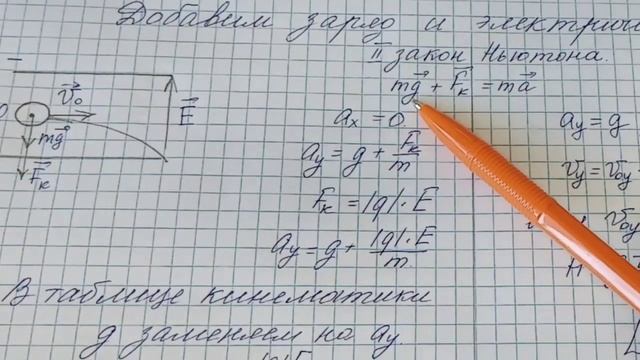 Добавим заряд и
II закон Ньютона.
mg⃗ + F⃗к = ma⃗
−
v⃗₀
E⃗
mg⃗
F⃗к
aₓ = 0
a_y = g + Fк/m
Fк = |q|·E
a_y = g + |q|·E/m
a_y = g
v_y = v₀y
v₀y
H
В таблице кинематики
g заменяем на a_y.